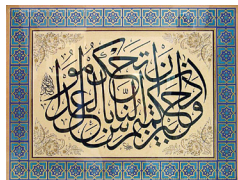 وإذا حكمتم بين الناس أن تحكموا بالعدل